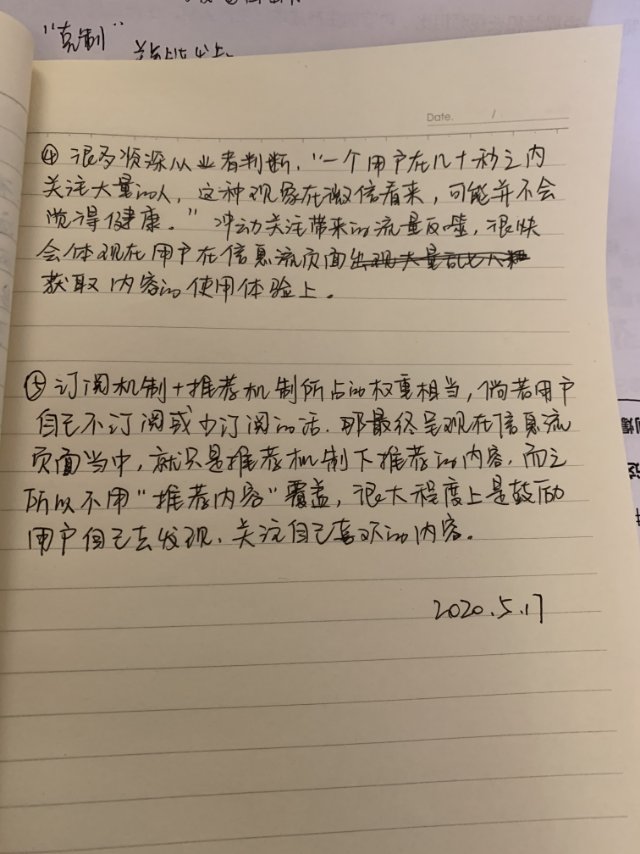 "克制"
Date. /
④ 很多资深从业者判断，"一个用户在几十秒之内
关注大量的人，这种现象在微信看来，可能并不会
觉得健康。"冲动关注带来的流量反噬，很快
会体现在用户在信息流页面出现大量
获取内容的使用体验上。
⑤ 订阅机制+推荐机制所占的权重相当，倘若用户
自己不订阅或少订阅的话，那最终呈现在信息流
页面当中，就只是推荐机制下推荐的内容，而之
所以不用"推荐内容"覆盖，很大程度上是鼓励
用户自己去发现、关注自己喜欢的内容。
2020.5.17